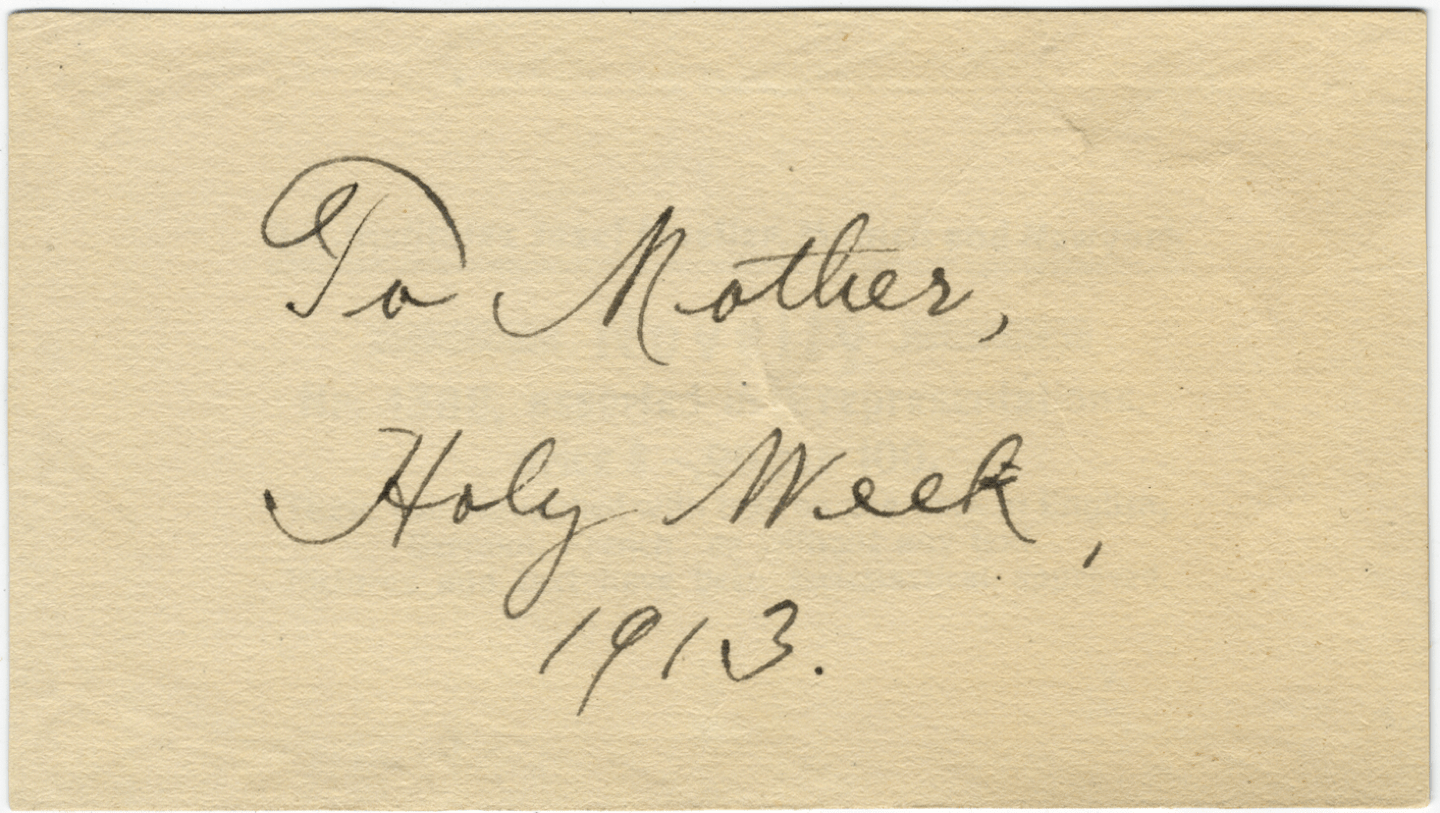 To Mother,
Holy Week,
1913.